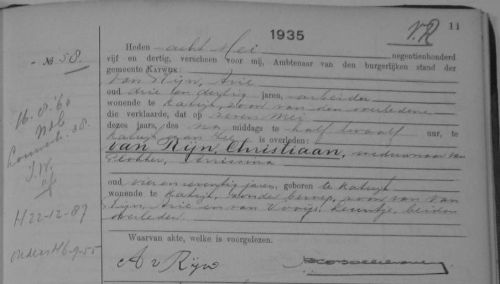 11
1935
v. R
№ 58.
Heden acht Mei negentienhonderd
vijf en dertig, verscheen voor mij, Ambtenaar van den burgerlijken stand der
gemeente KATWIJK:
van Rijn, Arie
oud drie en dertig jaren, arbeider
wonende te Katwijk, zoon van den overledene
die verklaarde, dat op zeven Mei
dezes jaars, des na middags te half twaalf uur, te
Katwijk aan Zee is overleden:
van Rijn, Christiaan, weduwnaar van
oud vier en zeventig jaren, geboren te Katwijk
wonende te Katwijk, zonder beroep, zoon van van
Rijn, Arie en van beiden
overleden.
Waarvan akte, welke is voorgelezen.
A v Rijn
16-8-'60
H 22-12-87